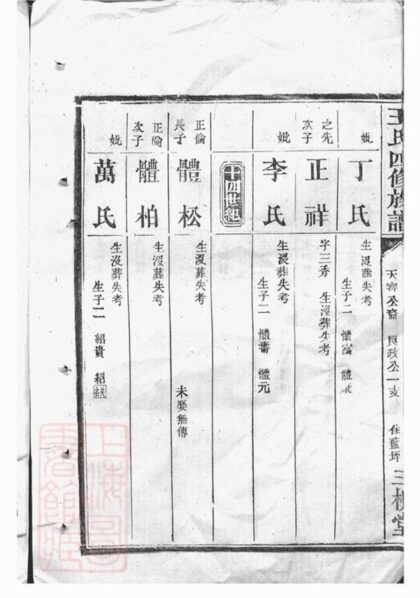 王氏四修族譜
天寄公裔 良政公一支 住藍坪
三槐堂
妣 丁氏 生沒葬失考 生子二
之先次子 正祥 字三秀 生沒葬失考
妣 李氏 生沒葬失考 生子二 體元
四世紀
正倫長子 體松 生沒葬失考 未娶無傳
正倫次子 體柏 生沒葬失考
妣 萬氏 生沒葬失考 生子二 紹貴 紹
上海圖書館藏